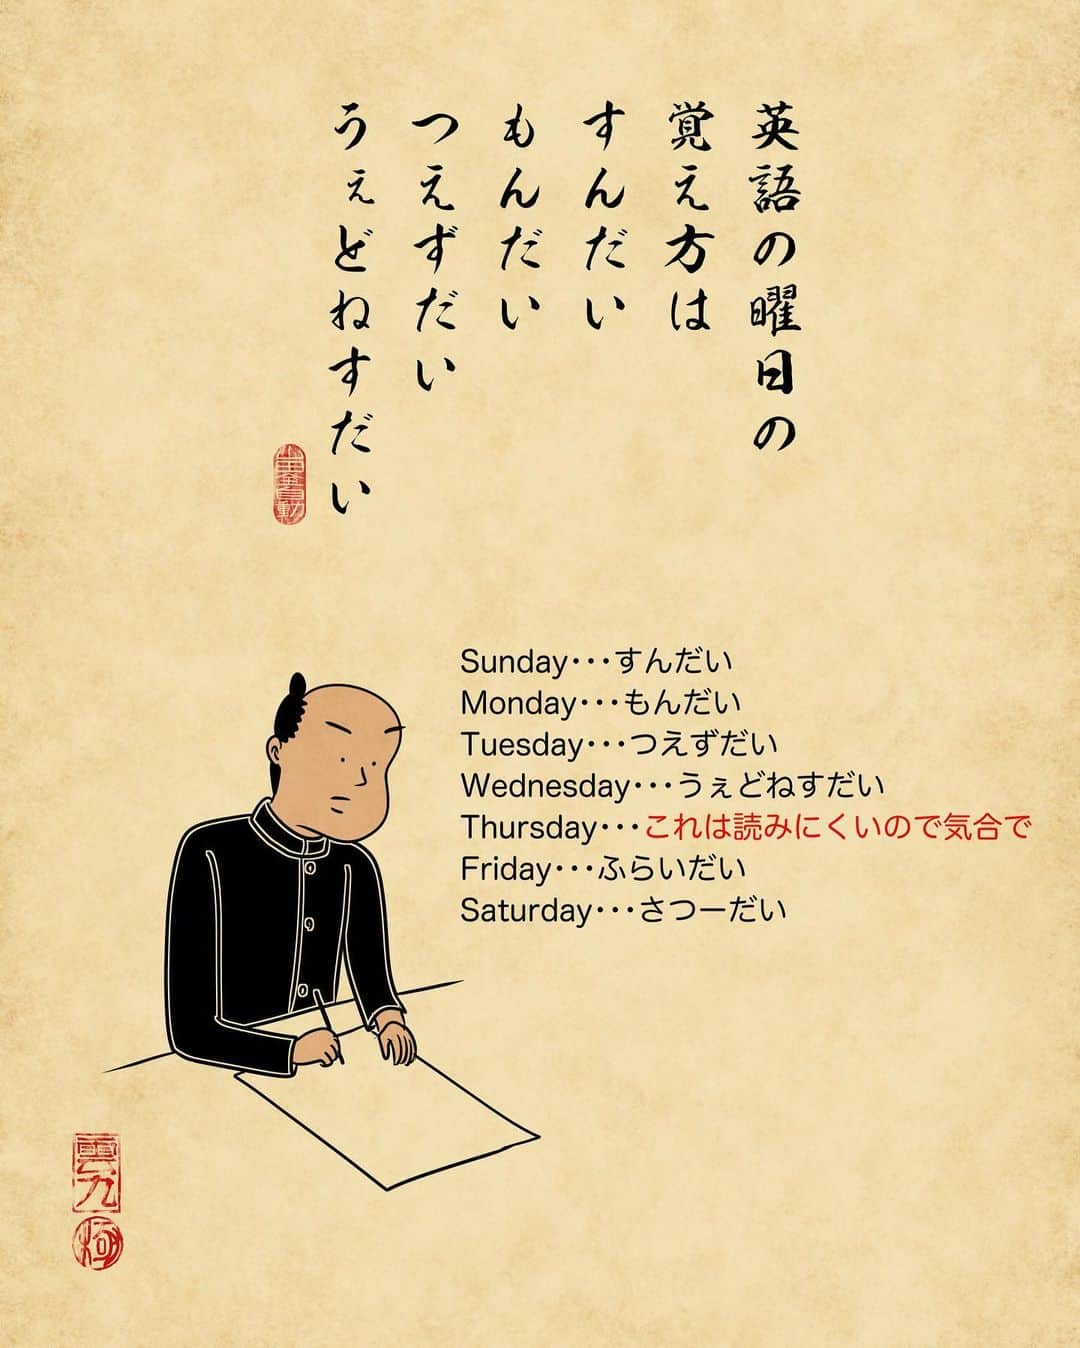 英語の曜日の
覚え方は
すんだい
もんだい
つえずだい
うぇどねすだい
Sunday･･･すんだい
Monday･･･もんだい
Tuesday･･･つえずだい
Wednesday･･･うぇどねすだい
Thursday･･･これは読みにくいので気合で
Friday･･･ふらいだい
Saturday･･･さつーだい